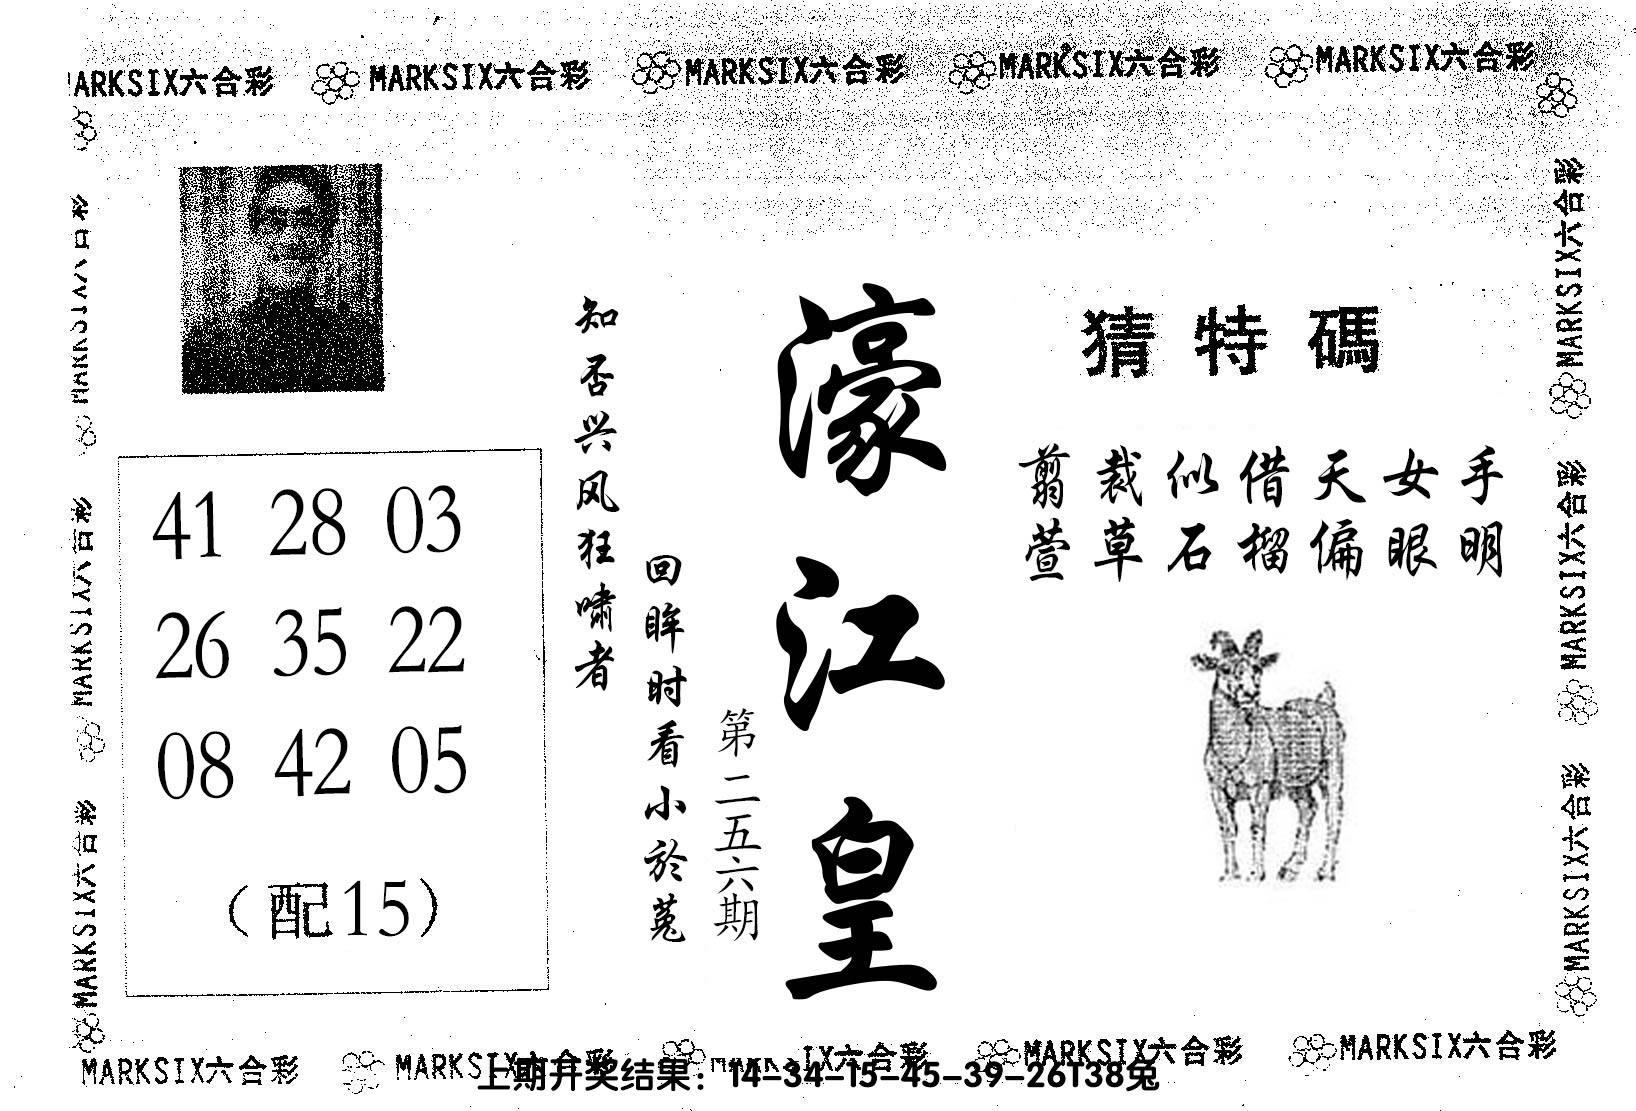 MARKSIX六合彩 MARKSIX六合彩 MARKSIX六合彩 MARKSIX六合彩 MARKSIX六合彩
猜特碼
剪裁似借天女手
萱草石榴偏眼明
濠江皇
第二五六期
知否兴风狂啸者
回眸时看小於菟
41 28 03
26 35 22
08 42 05
（配15）
MARKSIX六合彩
MARKSIX六合彩
MARKSIX六合彩
MARKSIX六合彩
MARKSIX六合彩
MARKSIX六合彩
MARKSIX六合彩 MARKSIX六合彩 MARKSIX六合彩 MARKSIX六合彩
上期开奖结果：14-34-15-45-39-26T38兔